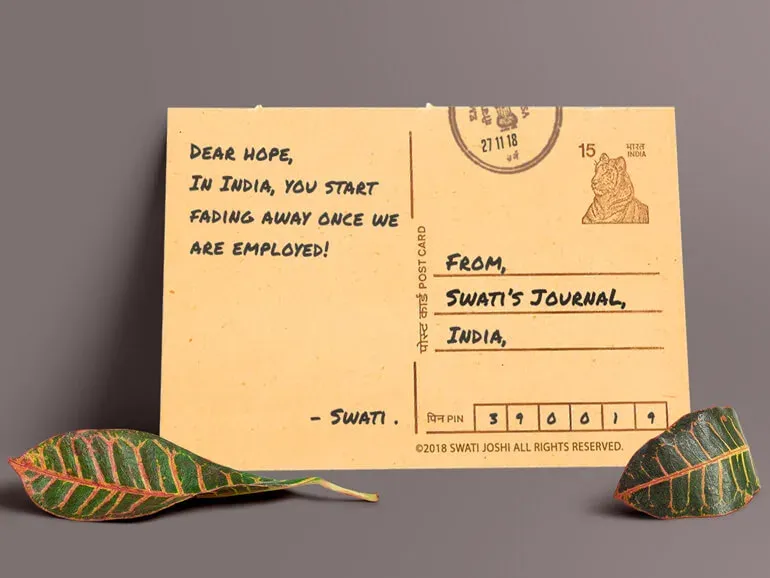 DEAR HOPE,
IN INDIA, YOU START
FADING AWAY ONCE WE
ARE EMPLOYED!
- SWATI .
पोस्ट कार्ड POST CARD
27 11 18
15 भारत
INDIA
FROM,
SWATI'S JOURNAL,
INDIA,
पिन PIN 3 9 0 0 1 9
©2018 SWATI JOSHI ALL RIGHTS RESERVED.